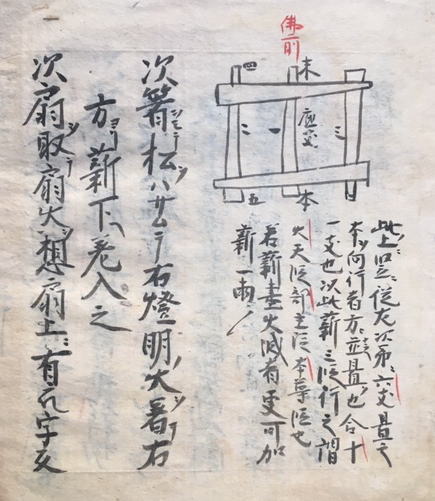 佛前
四 末
二 一 三
五 本
此上置從左次第六支置之
本向行者方並置也合十
一支也以此薪三段行之謂
火天段部主段本尊段也
若薪盡火滅者更可加
薪一兩
次箸松ハサムテ右燈明火着右
方ヨリ薪下差入之
次扇取扇火想扇上有字反